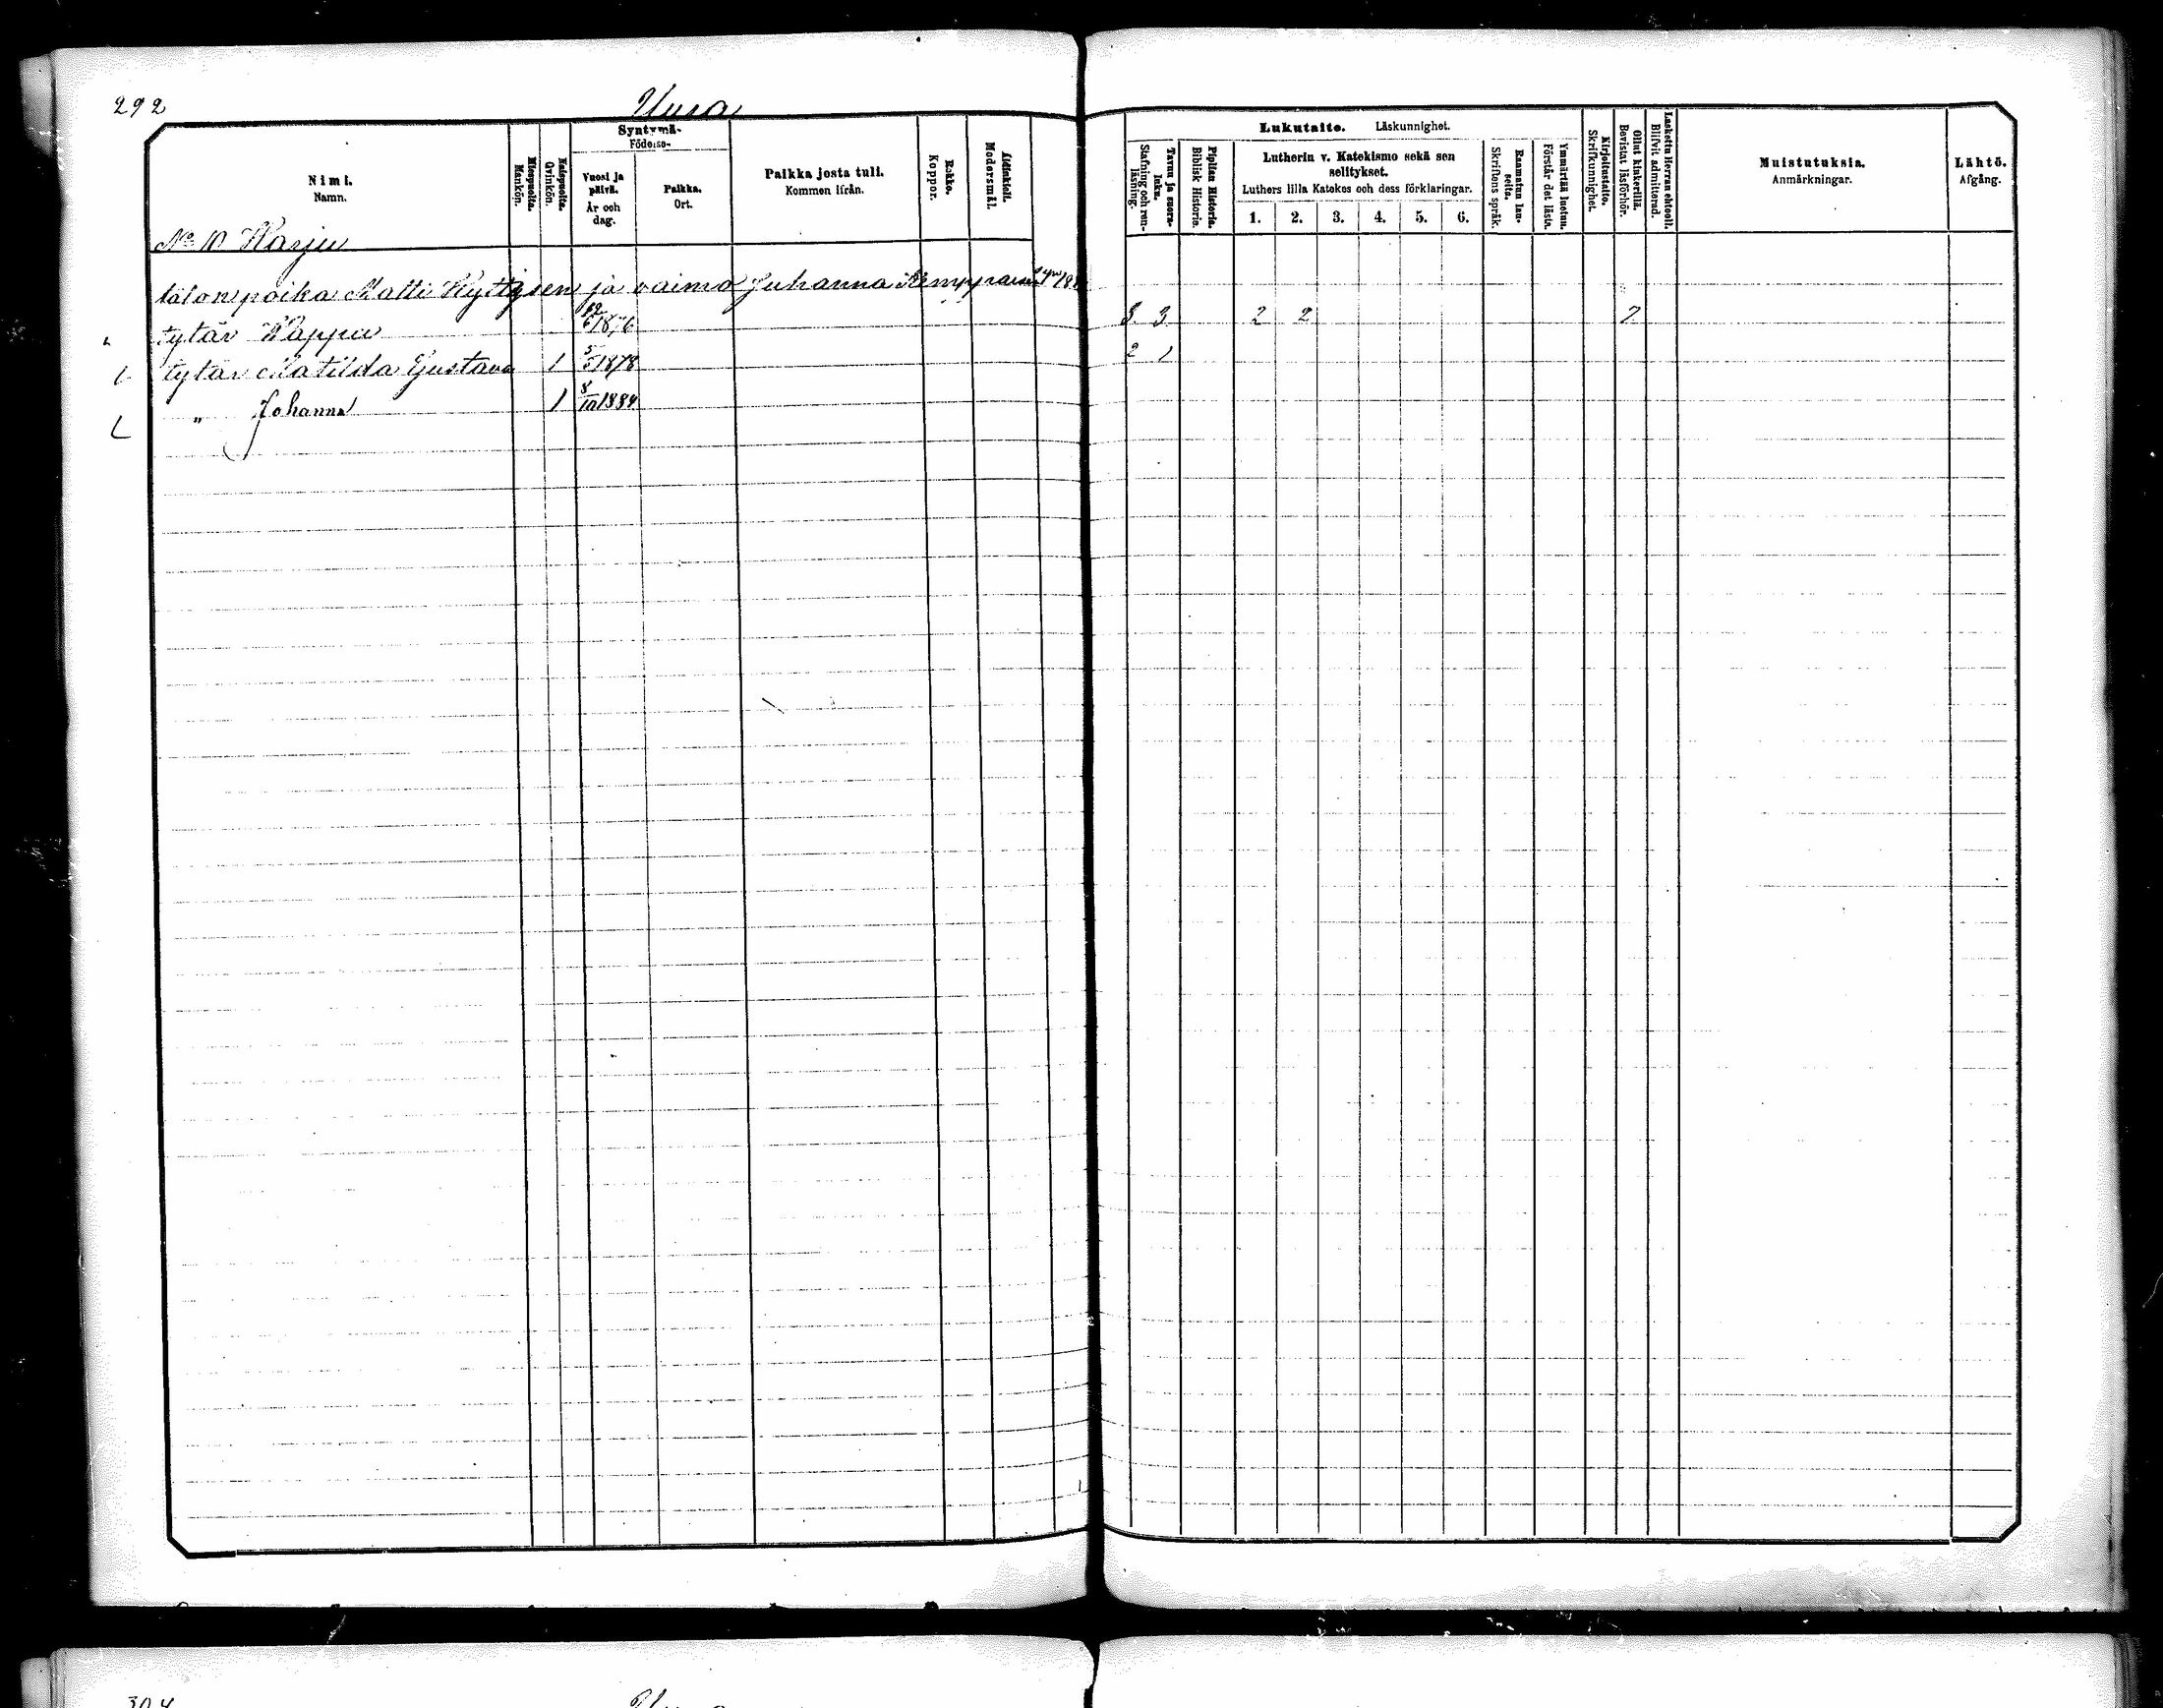 292
Uura
Nimi.
Namn.
Miespuolta.
Mankön.
Naispuolta.
Qvinkön.
Syntymä-
Födelse-
Vuosi ja päivä.
År och dag.
Paikka.
Ort.
Paikka josta tuli.
Kommen ifrån.
Rokko.
Koppor.
Äidinkieli.
Modersmål.
Lukutaito. Läskunnighet.
Tavuu ja suora-luku.
Stafning och ren-läsning.
Piplian Historia.
Biblisk Historie.
Lutherin v. Katekismo sekä sen
selitykset.
Luthers lilla Katekes och dess förklaringar.
1. 2. 3. 4. 5. 6.
Raamatun lau-seita.
Skriftens språk.
Ymmärtää luetun.
Förstår det lästa.
Kirjoitustaito.
Skrifkunnighet.
Ollut kinkerillä.
Bevistat läsförhör.
Laskettu Herran ehtooll.
Blifvit admitterad.
Muistutuksia.
Anmärkningar.
Lähtö.
Afgång.
No 10 Harju
talon poika Matti Hyttysen ja vaimo Juhanna Kemppaisen
tytär Wappu 12/6 1876 3 3 2 2 7
tytär Matilda Gustava 1 5/5 1878 2 1
„ Johanna 1 8/10 1884
304